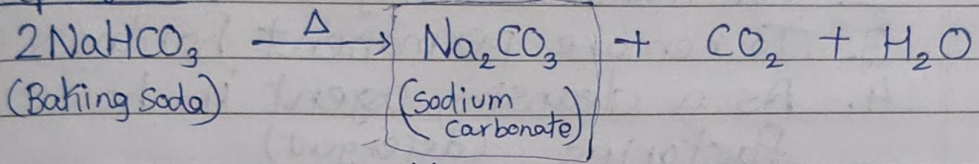 2NaHCO₃ —Δ→ Na₂CO₃ + CO₂ + H₂O
(Baking soda) (Sodium
carbonate)